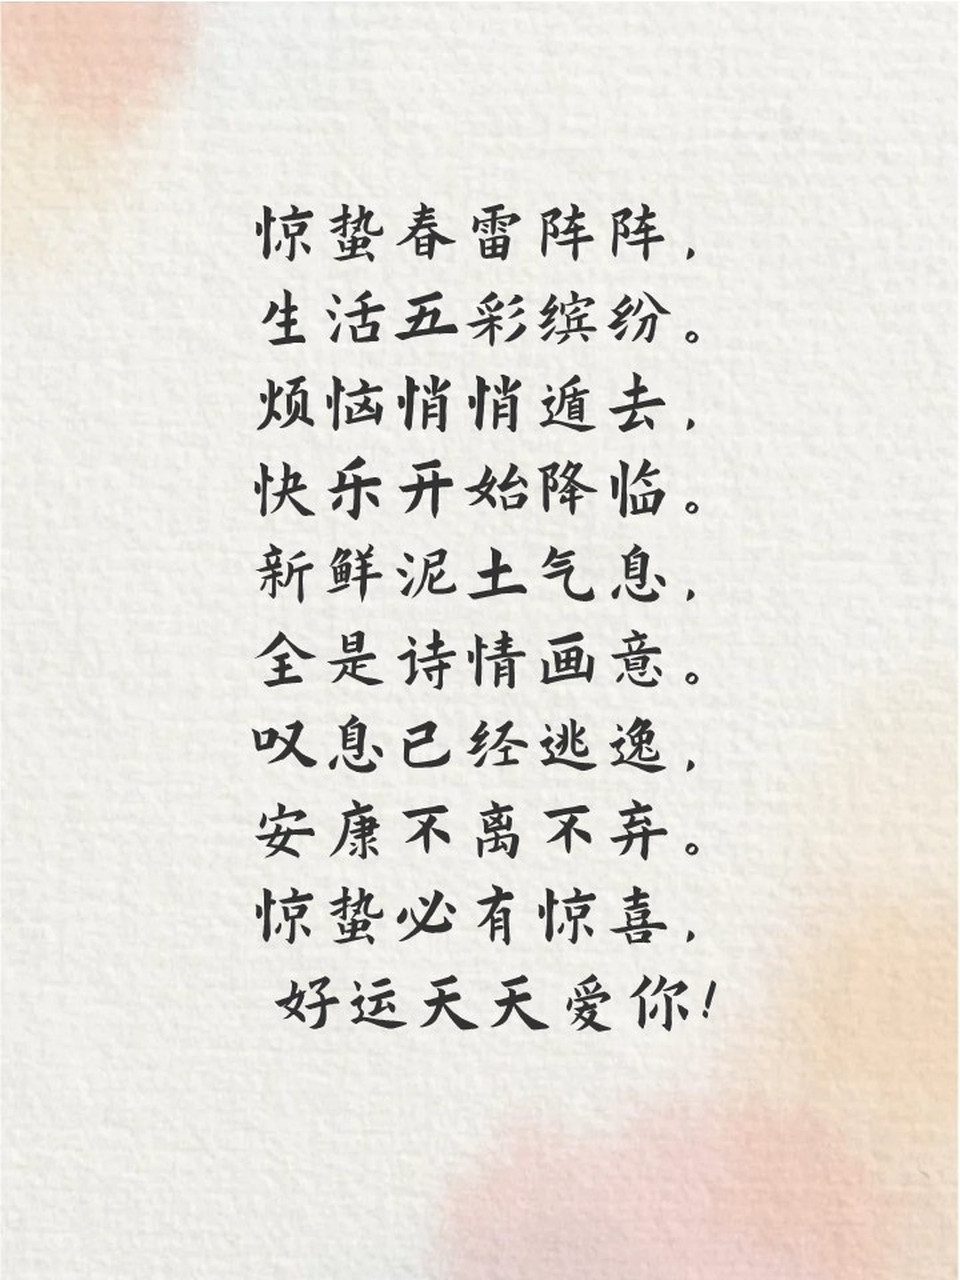 惊蛰春雷阵阵，
生活五彩缤纷。
烦恼悄悄遁去，
快乐开始降临。
新鲜泥土气息，
全是诗情画意。
叹息已经逃逸，
安康不离不弃。
惊蛰必有惊喜，
好运天天爱你！